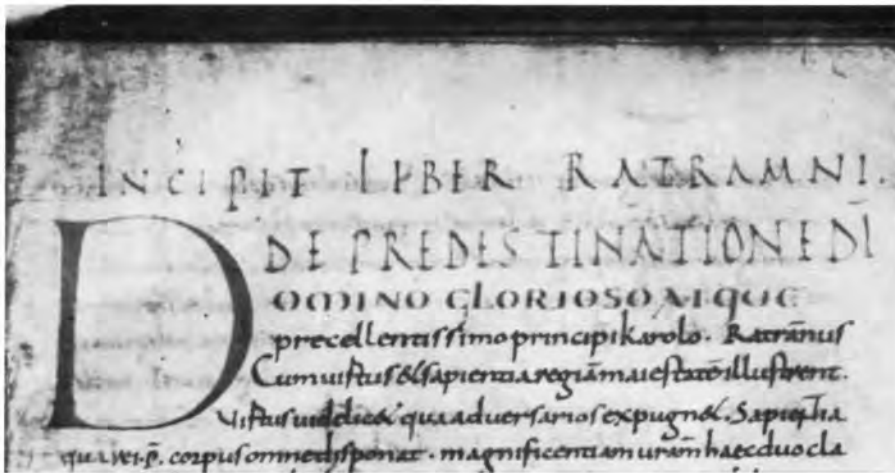 INCIPIT LIBER RATRAMNI.
DE PREDESTINATIONE DĪ
DOMINO GLORIOSO ATQUE
precellentissimo principi karolo. Ratrānus
Cum uirtus & sapientia regiām maiestatē illustrent.
Uirtus uidelic& qua aduersarios expugn&. Sapientia
qua rei .p̄. corpus omne disponat. magnificentiam urām haec duo cla